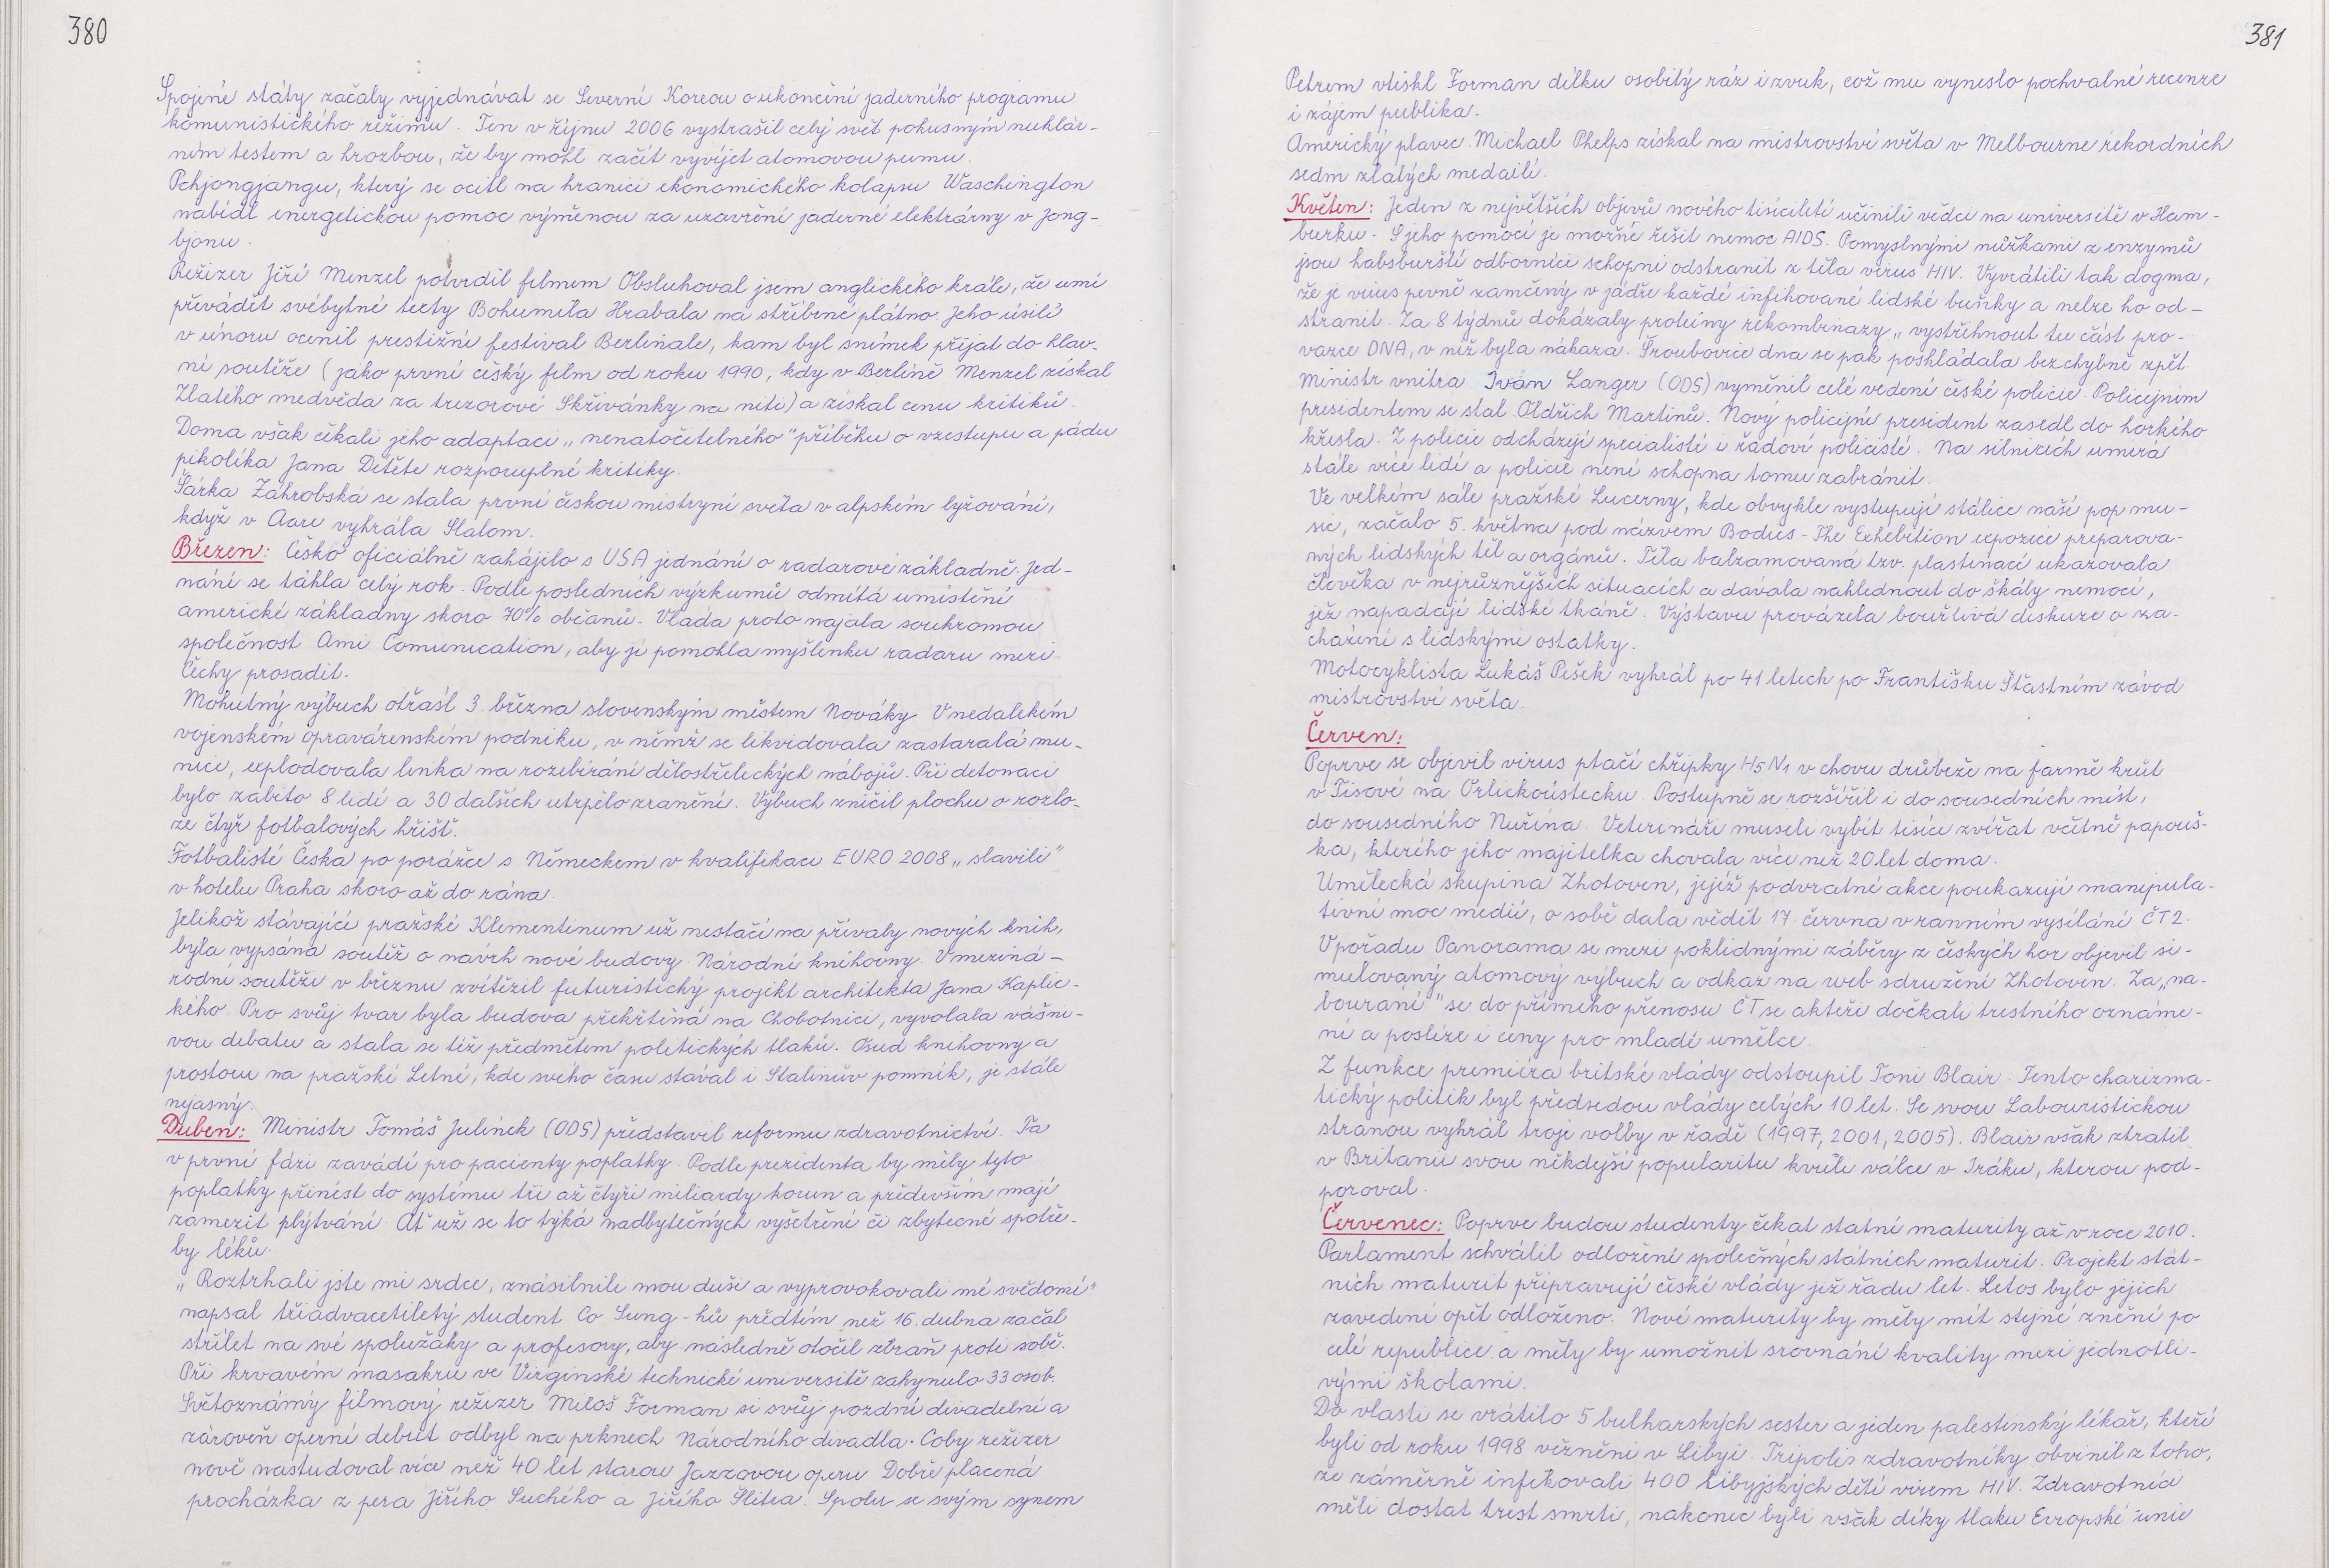 380
Spojené státy začaly vyjednávat se Severní Koreou o ukončení jaderného programu
komunistického režimu. Ten v říjnu 2006 vystrašil celý svět pokusným nukleár-
ním testem a hrozbou, že by mohl začít vyvíjet atomovou pumu.
Pchjongjangu, který se ocitl na hranici ekonomického kolapsu Waschington
nabídl energetickou pomoc výměnou za uzavření jaderné elektrárny v Jong-
bjonu.
Režizer Jiří Menzel potvrdil filmem Obsluhoval jsem anglického krále, že umí
převádět svébytné texty Bohumila Hrabala na stříbrné plátno. Jeho úsilí
v únoru ocenil prestižní festival Berlinale, kam byl snímek přijat do hlav-
ní soutěže (jako první český film od roku 1990, kdy v Berlíně Menzel získal
Zlatého medvěda za trezorové Skřivánky na niti) a získal cenu kritiků.
Doma však čekali jeho adaptaci „nenatočitelného" příběhu o vzestupu a pádu
pikolíka Jana Dítěte rozporuplné kritiky.
Šárka Záhrobská se stala první českou mistryní světa v alpském lyžování,
když v Aare vyhrála Slalom.
Březen: Česko oficiálně zahájilo s USA jednání o radarové základně. Jed-
nání se táhla celý rok. Podle posledních výzkumů odmítá umístění
americké základny skoro 70% občanů. Vláda proto najala soukromou
společnost Ami Comunication, aby jí pomohla myšlenku radaru mezi
Čechy prosadit.
Mohutný výbuch otřásl 3. března slovenským městem Nováky. V nedalekém
vojenském opravárenském podniku, v němž se likvidovala zastaralá mu-
nice, explodovala linka na rozebírání dělostřeleckých nábojů. Při detonaci
bylo zabito 8 lidí a 30 dalších utrpělo zranění. Výbuch zničil plochu o rozlo-
ze čtyř fotbalových hřišť.
Fotbalisté Česka po porážce s Německem v kvalifikaci EURO 2008 „slavili"
v hotelu Praha skoro až do rána.
Jelikož stávající pražské Klementinum už nestačí na přívaly nových knih,
byla vypsána soutěž o návrh nové budovy Národní knihovny. V meziná-
rodní soutěži v březnu zvítězil futuristický projekt architekta Jana Kaplic-
kého. Pro svůj tvar byla budova překřtěná na Chobotnici, vyvolala vášni-
vou debatu a stala se též předmětem politických tlaků. Osud knihovny a
prostoru na pražské Letné, kde svého času stával i Stalinův pomník, je stále
nejasný.
Duben: Ministr Tomáš Julínek (ODS) představil reformu zdravotnictví. Ta
v první fázi zavádí pro pacienty poplatky. Podle prezidenta by měly tyto
poplatky přinést do systému tři až čtyři miliardy korun a především mají
zamezit plýtvání. Ať už se to týká nadbytečných vyšetření či zbytečné spotře-
by léků.
„Roztrhali jste mi srdce, znásilnili mou duši a vyprovokovali mé svědomí"
napsal třiadvacetiletý student Co Sung-hŭi předtím než 16. dubna začal
střílet na své spolužáky a profesory, aby následně otočil zbraň proti sobě.
Při krvavém masakru ve Virginské technické universitě zahynulo 33 osob.
Světoznámý filmový režizer Miloš Forman si svůj pozdní divadelní a
zároveň operní debut odbyl na prknech Národního divadla. Coby režizer
nově nastudoval více než 40 let starou Jazzovou operu Dobře placená
procházka z pera Jiřího Suchého a Jiřího Šlitra. Spolu se svým synem
381
Petrem vtiskl Forman dílku osobitý ráz i zvuk, což mu vyneslo pochvalné recenze
i zájem publika.
Americký plavec Michael Phelps získal na mistrovství světa v Melbourne rekordních
sedm zlatých medailí.
Květen: Jeden z největších objevů nového tisíciletí učinili vědci na universitě v Ham-
burku. S jeho pomocí je možné řešit nemoc AIDS. Pomyslnými nůžkami z enzymů
jsou habsburští odborníci schopni odstranit z těla virus HIV. Vyvrátili tak dogma,
že je virus pevně zamčený v jádře každé infikované lidské buňky a nelze ho od-
stranit. Za 8 týdnů dokázaly proteiny rekombinazy „vystřihnout tu část pro-
vazce DNA, v níž byla nákaza. Šroubovice dna se pak poskládala bezchybně zpět.
Ministr vnitra Ivan Langer (ODS) vyměnil celé vedení české policie. Policejním
presidentem se stal Oldřich Martinů. Nový policejní president zasedl do horkého
křesla. Z policie odcházejí specialisté i řadoví policisté. Na silnicích umírá
stále více lidí a policie není schopna tomu zabránit.
Ve velkém sále pražské Lucerny, kde obvykle vystupují stálice naší pop mu-
sic, začalo 5. května pod názvem Bodies - The Exhebition expozice preparova-
ných lidských těl a orgánů. Těla balzamovaná tzv. plastinací ukazovala
člověka v nejrůznějších situacích a dávala nahlédnout do škály nemocí,
jež napadají lidské tkáně. Výstavu provázela bouřlivá diskuze o za-
cházení s lidskými ostatky.
Motocyklista Lukáš Pešek vyhrál po 41 letech po Františku Šťastném závod
mistrovství světa.
Červen:
Poprve se objevil virus ptačí chřipky H5N1 v chovu drůbeže na farmě krůt
v Tisové na Orlickoústecku. Postupně se rozšířil i do sousedních míst,
do sousedního Nořína. Veterináři museli vybít tisíce zvířat včetně papouš-
ka, kterého jeho majitelka chovala více než 20 let doma.
Umělecká skupina Zhotoven, jejíž podvratné akce poukazují manipula-
tivní moc medií, o sobě dala vědět 17. června v ranním vysílání ČT2.
V pořadu Panorama se mezi poklidnými záběry z českých hor objevil si-
mulovaný atomový výbuch a odkaz na web sdružení Zhotoven. Za „na-
bourání" se do přímého přenosu ČT se aktéři dočkali trestního oznáme-
ní a posléze i ceny pro mladé umělce.
Z funkce premiéra britské vlády odstoupil Toni Blair. Tento charizma-
tický politik byl předsedou vlády celých 10 let. Se svou Labouristickou
stranou vyhrál troje volby v řadě (1997, 2001, 2005). Blair však ztratil
v Britanii svou někdejší popularitu kvůli válce v Iráku, kterou pod-
poroval.
Červenec: Poprve budou studenty čekat statní maturity až v roce 2010.
Parlament schválil odložení společných státních maturit. Projekt stát-
ních maturit připravují české vlády již řadu let. Letos bylo jejich
zavedení opět odloženo. Nové maturity by měly mít stejné znění po
celé republice a měly by umožnit srovnání kvality mezi jednotli-
vými školami.
Do vlasti se vrátilo 5 bulharských sester a jeden palestinský lékař, kteří
byli od roku 1998 vězněni v Libyi. Tripolis zdravotníky obvinil z toho,
že záměrně infikovali 400 libyjských dětí virem HIV. Zdravotníci
měli dostat trest smrti, nakonec byli však díky tlaku Evropské unie